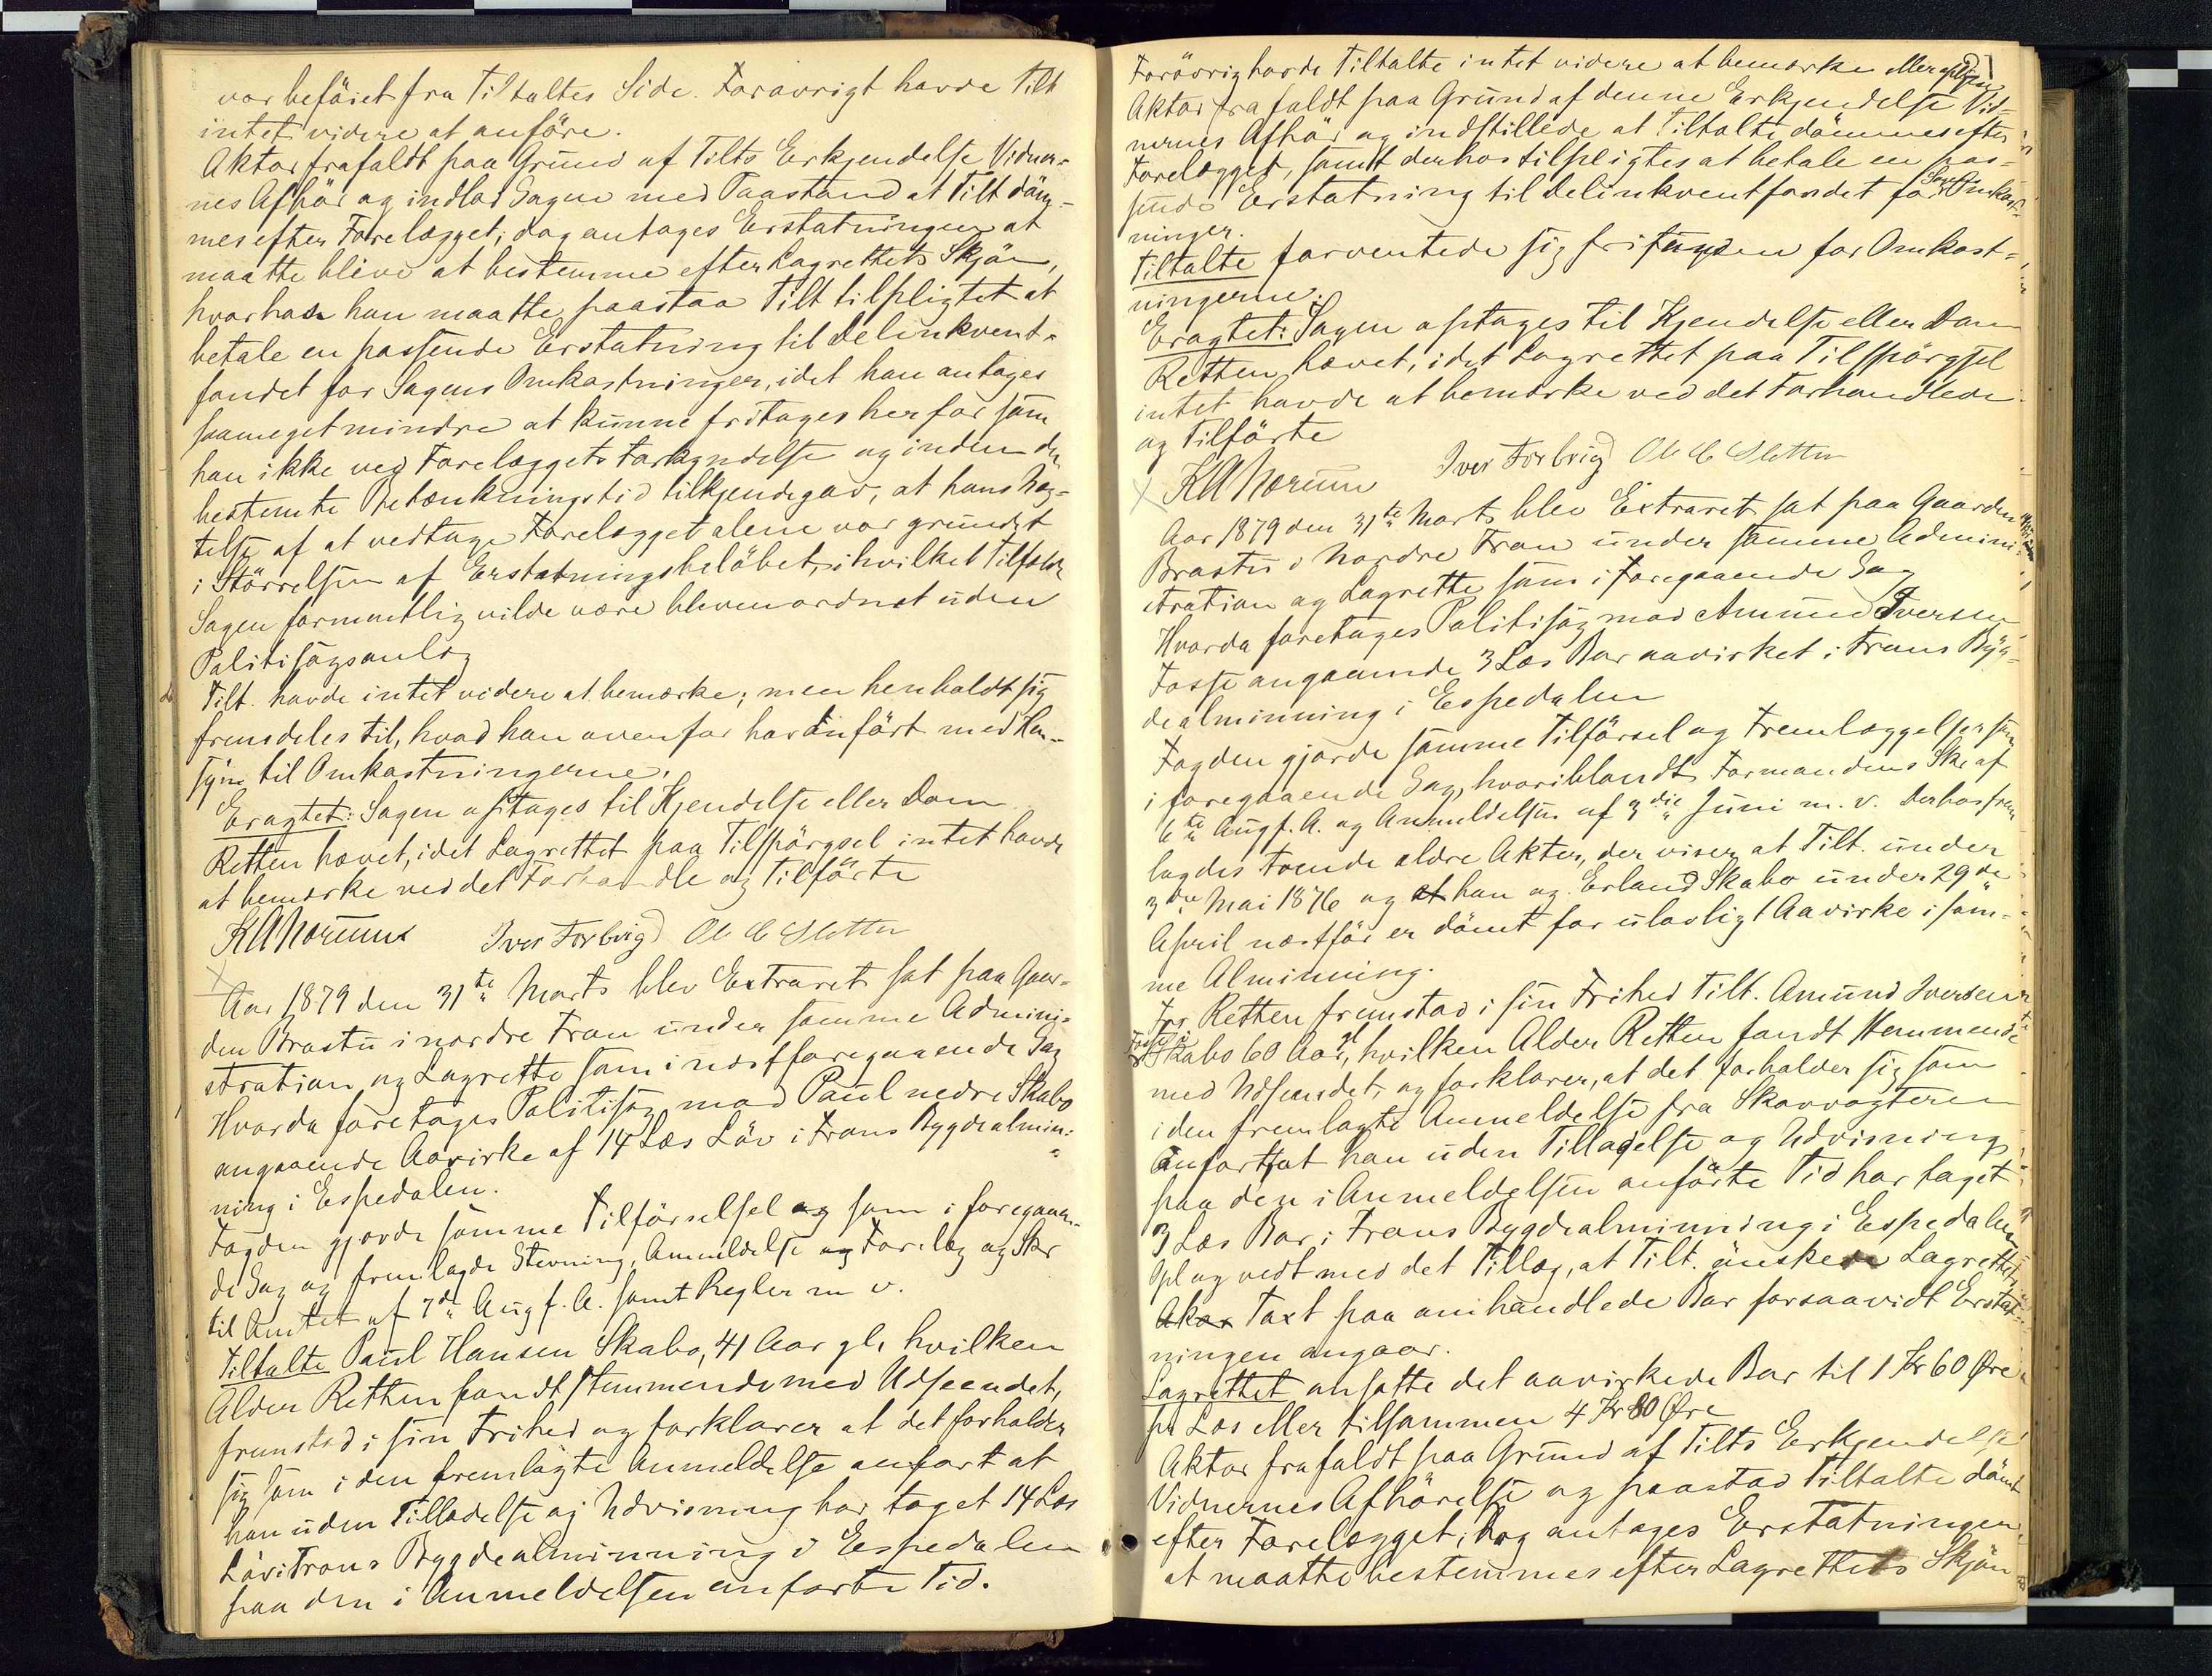 var beföiet fra Tiltaltes Side. Forøvrigt havde Tilt
intet videre at anføre.
Aktor frafaldt paa Grund af Tilts Erkjendelse Vidner-
nes Afhør og indlod Sagen med Paastand at Tilt döm-
mes efter Forelægget; dog antages Erstatningen at
maatte blive at bestemme efter Lagrettets Skjön,
hvorhos han maatte paastaa Tilt tilpligtet at
betale en passende Erstatning til Delinkvent-
fondet for Sagens Omkostninger, idet han antages
saameget mindre at kunne fritages herfor som
han ikke ved Forelæggets Forkyndelse og inden den
bestemte Betænkningstid tilkjendegav, at hans Næg-
telse af at vedtage Forelægget alene var grundet
i Störrelsen af Erstatningsbelöbet, i hvilket Tilfælde
Sagen formentlig vilde være bleven ordnet uden
Politisagsanlæg
Tilt. havde intet videre at bemærke; men henholdt sig
fremdeles til, hvad han ovenfor har anfört med Hen-
syn til Omkostningerne.
Eragtet: Sagen optages til Kjendelse eller Dom
Retten hævet, idet Lagrettet paa Tilspörgsel intet havde
at bemærke ved det Forhandle og Tilförte
KANorum Iver Forbrigd Ole C Sletten
Aar 1879 den 31te Marts blev Extraret sat paa Gaar-
den Brastu i nordre Fron under samme Admini-
stration og Lagrette som i næstforegaaende Sag
Hvorda foretages Politisag mod Paul nedre Skabo
angaaende Aavirke af 14 Læs Löv i Frons Bygdealmin-
ning i Espedalen.
Fogden gjorde samme Tilförselsel og som i foregaaen-
de Sag og fremlagde Stevning, Anmeldelse og Forelæg og Skr
til Amtet af 7de Aug f. A. samt Regler m v.
Tiltalte Paul Hansen Skabo, 41 Aar gl, hvilken
Alder Retten fandt stemmende med Udseendet,
fremstod i sin Frihed og forklarer at det forholder
sig som i den fremlagte Anmeldelse anfort at
han uden Tilladelse og Udvisning har taget 14 Læs
Löv i Frons Bygdealminning i Espedalen
paa den i Anmeldelsen anforte Tid.
Forövrig havde Tiltalte intet videre at bemærke eller oplyse
Aktor frafaldt paa Grund af denne Erkjendelse Vid-
nernes Afhør og indstillede at Tiltalte dömmes efter
Forelægget, samt derhos tilpligtes at betale en pas-
sende Erstatning til Delinkventfondet for Sagens Omkost-
ninger.
Tiltalte forventede sig fritagen for Omkost-
ningerne.
Eragtet: Sagen optages til Kjendelse eller Dom
Retten hævet, idet Lagrettet paa Tilspörgsel
intet havde at bemærke ved det Forhandlede
og Tilförte
KANorum Iver Forbrigd Ole C Sletten
Aar 1879 den 31te Marts blev Extraret sat paa Gaarden
Brastu i Nordre Fron under samme Admini-
stration og Lagrette som i foregaaende Sag
Hvorda foretages Politisag mod Amund Iversen
Fosse angaaende 3 Læs Bar aavirket i Frons Byg-
dealminning i Espedalen
Fogden gjorde samme Tilförsel og Fremlæggelser som
i foregaaende Sag, hvoriblandt Formandens Skr af
6te Aug f. A. og Anmeldelsen af 3die Juni m. v. Derhos frem
lagdes tvende ældre Akter, der viser at Tilt. under
3die Mai 1876 og at han og Erland Skabo under 29de
April næstfør er dömt for ulovligt Aavirke i sam-
me Alminning.
For Retten fremstod i sin Frihed Tilt. Amund Iversen
Skabo 60 Aar gl, hvilken Alder Retten fandt stemmende
med Udseendet, og forklarer, at det forholder sig som
i den fremlagte Anmeldelse fra Skovvogteren
anfort at han uden Tilladelse og Udvisning
paa den i Anmeldelsen anförte Tid har taget
3 Læs Bar i Frons Bygdealminning i Espedalen
Opl og vedt med det Tillæg, at Tilt. önskede Lagrettets
Taxt paa omhandlede Bar forsaavidt Erstat-
ningen angaar.
Lagrettet ansatte det aavirkede Bar til 1 Kr 60 Øre
pr Læs eller tilsammen 4 Kr 80 Øre
Aktor frafaldt paa Grund af Tilts Erkjendelse
Vidnernes Afhörelse og paastod Tiltalte dömt
efter Forelægget; dog antages Erstatningen
at maatte bestemmes efter Lagrettets Skjön